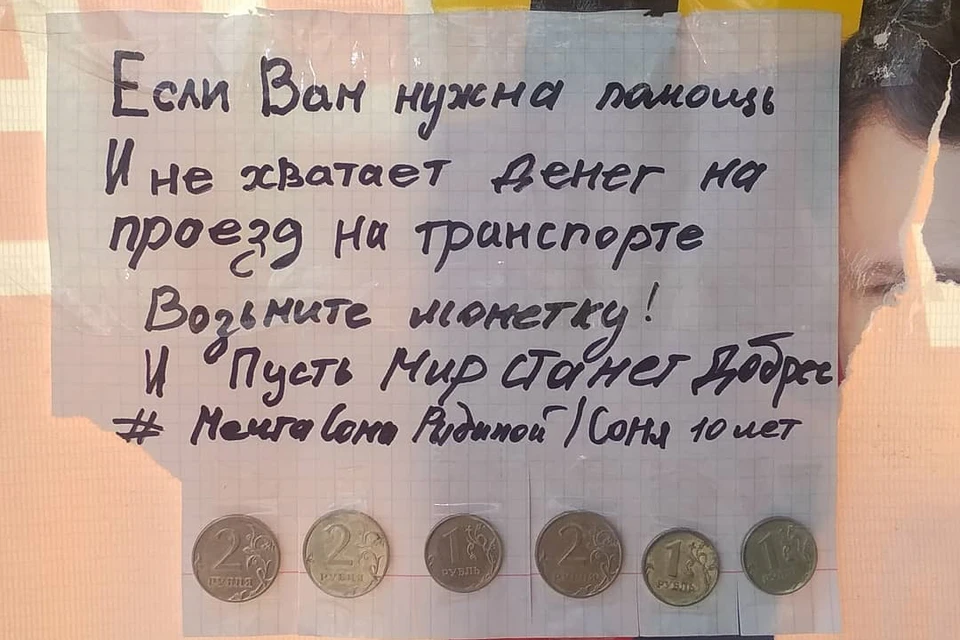 Если Вам нужна помощь
И не хватает денег на
проезд на транспорте
Возьмите монетку!
И Пусть Мир станет Добрее
# Мечта Сони /Соня 10 лет
2 РУБЛЯ 2 РУБЛЯ 1 РУБЛЬ 2 РУБЛЯ 1 РУБЛЬ 1 РУБЛЬ